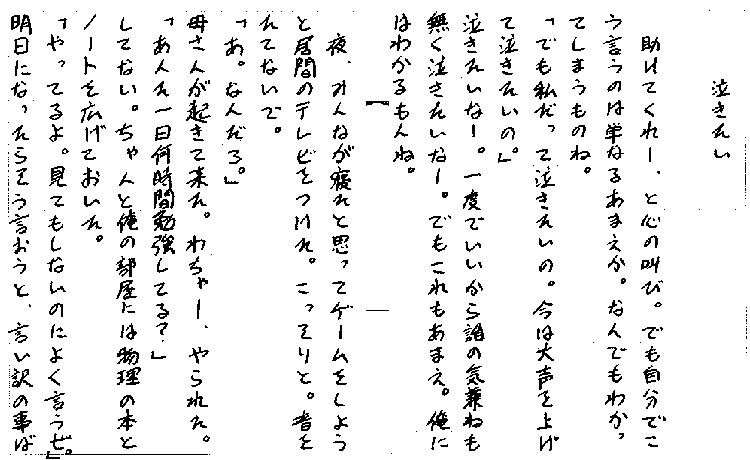 泣きたい
助けてくれー、と心の叫び。でも自分でこ
う言うのは単なるあまえか。なんでもわかっ
てしまうものね。
「でも私だって泣きたいの。今は大声を上げ
て泣きたいの。」
泣きたいなー。一度でいいから誰の気兼ねも
無く泣きたいなー。でもこれもあまえ。俺に
はわかるもんね。
夜、みんなが寝たと思ってゲームをしよう
と居間のテレビをつけた。こっそりと。音を
たてないで。
「あ。なんだろ。」
母さんが起きて来た。わちゃー、やられた。
「あんた一日何時間勉強してる?」
してない。ちゃんと俺の部屋には物理の本と
ノートを広げておいた。
「やってるよ。見てもしないのによく言うぜ。」
明日になったらそう言おうと、言い訳の事ば